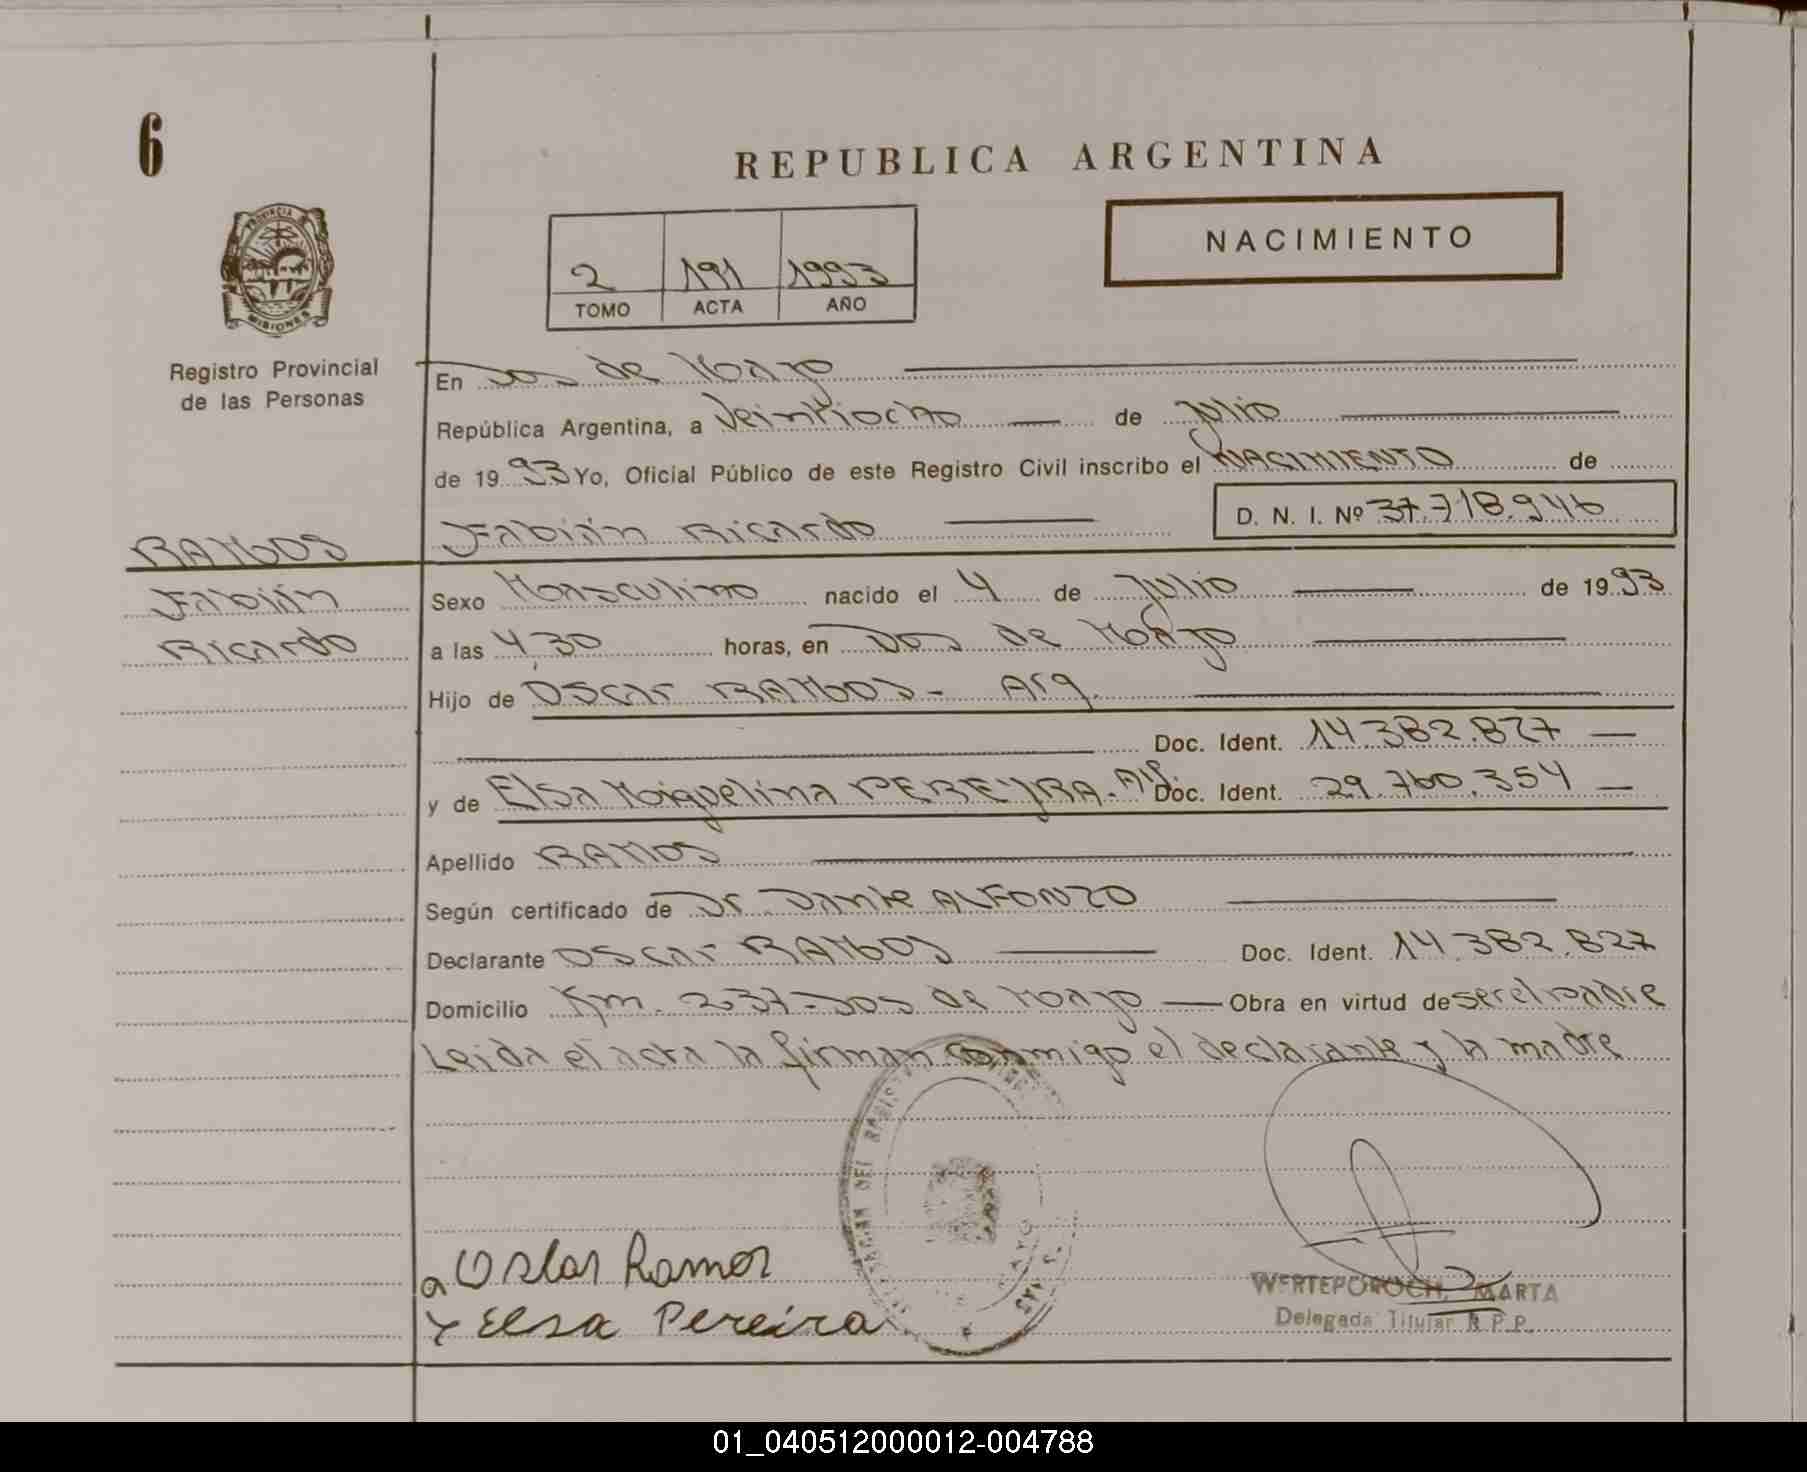 6
REPUBLICA ARGENTINA
NACIMIENTO
2 191 1993
TOMO ACTA AÑO
PROVINCIA DE
MISIONES
Registro Provincial
de las Personas
En Dos de Mayo
República Argentina, a Veintiocho de Julio
de 1993 Yo, Oficial Público de este Registro Civil inscribo el NACIMIENTO de
Fabián Ricardo D. N. I. Nº 37.718.946
RAMOS
Fabián
Ricardo
Sexo Masculino nacido el 4 de Julio de 1993
a las 4,30 horas, en Dos de Mayo
Hijo de Oscar RAMOS - Arg.
Doc. Ident. 14.382.827
y de Elsa Miguelina PEREYRA. Arg. Doc. Ident. 29.760.354
Apellido RAMOS
Según certificado de Dr. Dante ALFONZO
Declarante Oscar RAMOS Doc. Ident. 14.382.827
Domicilio Km. 237 - Dos de Mayo Obra en virtud de ser el padre
Leida el acta la firman conmigo el declarante y la madre
Oscar Ramos
y Elsa Pereira
WERTEPOROCH, MARTA
Delegada Titular R.P.P.
01_040512000012-004788